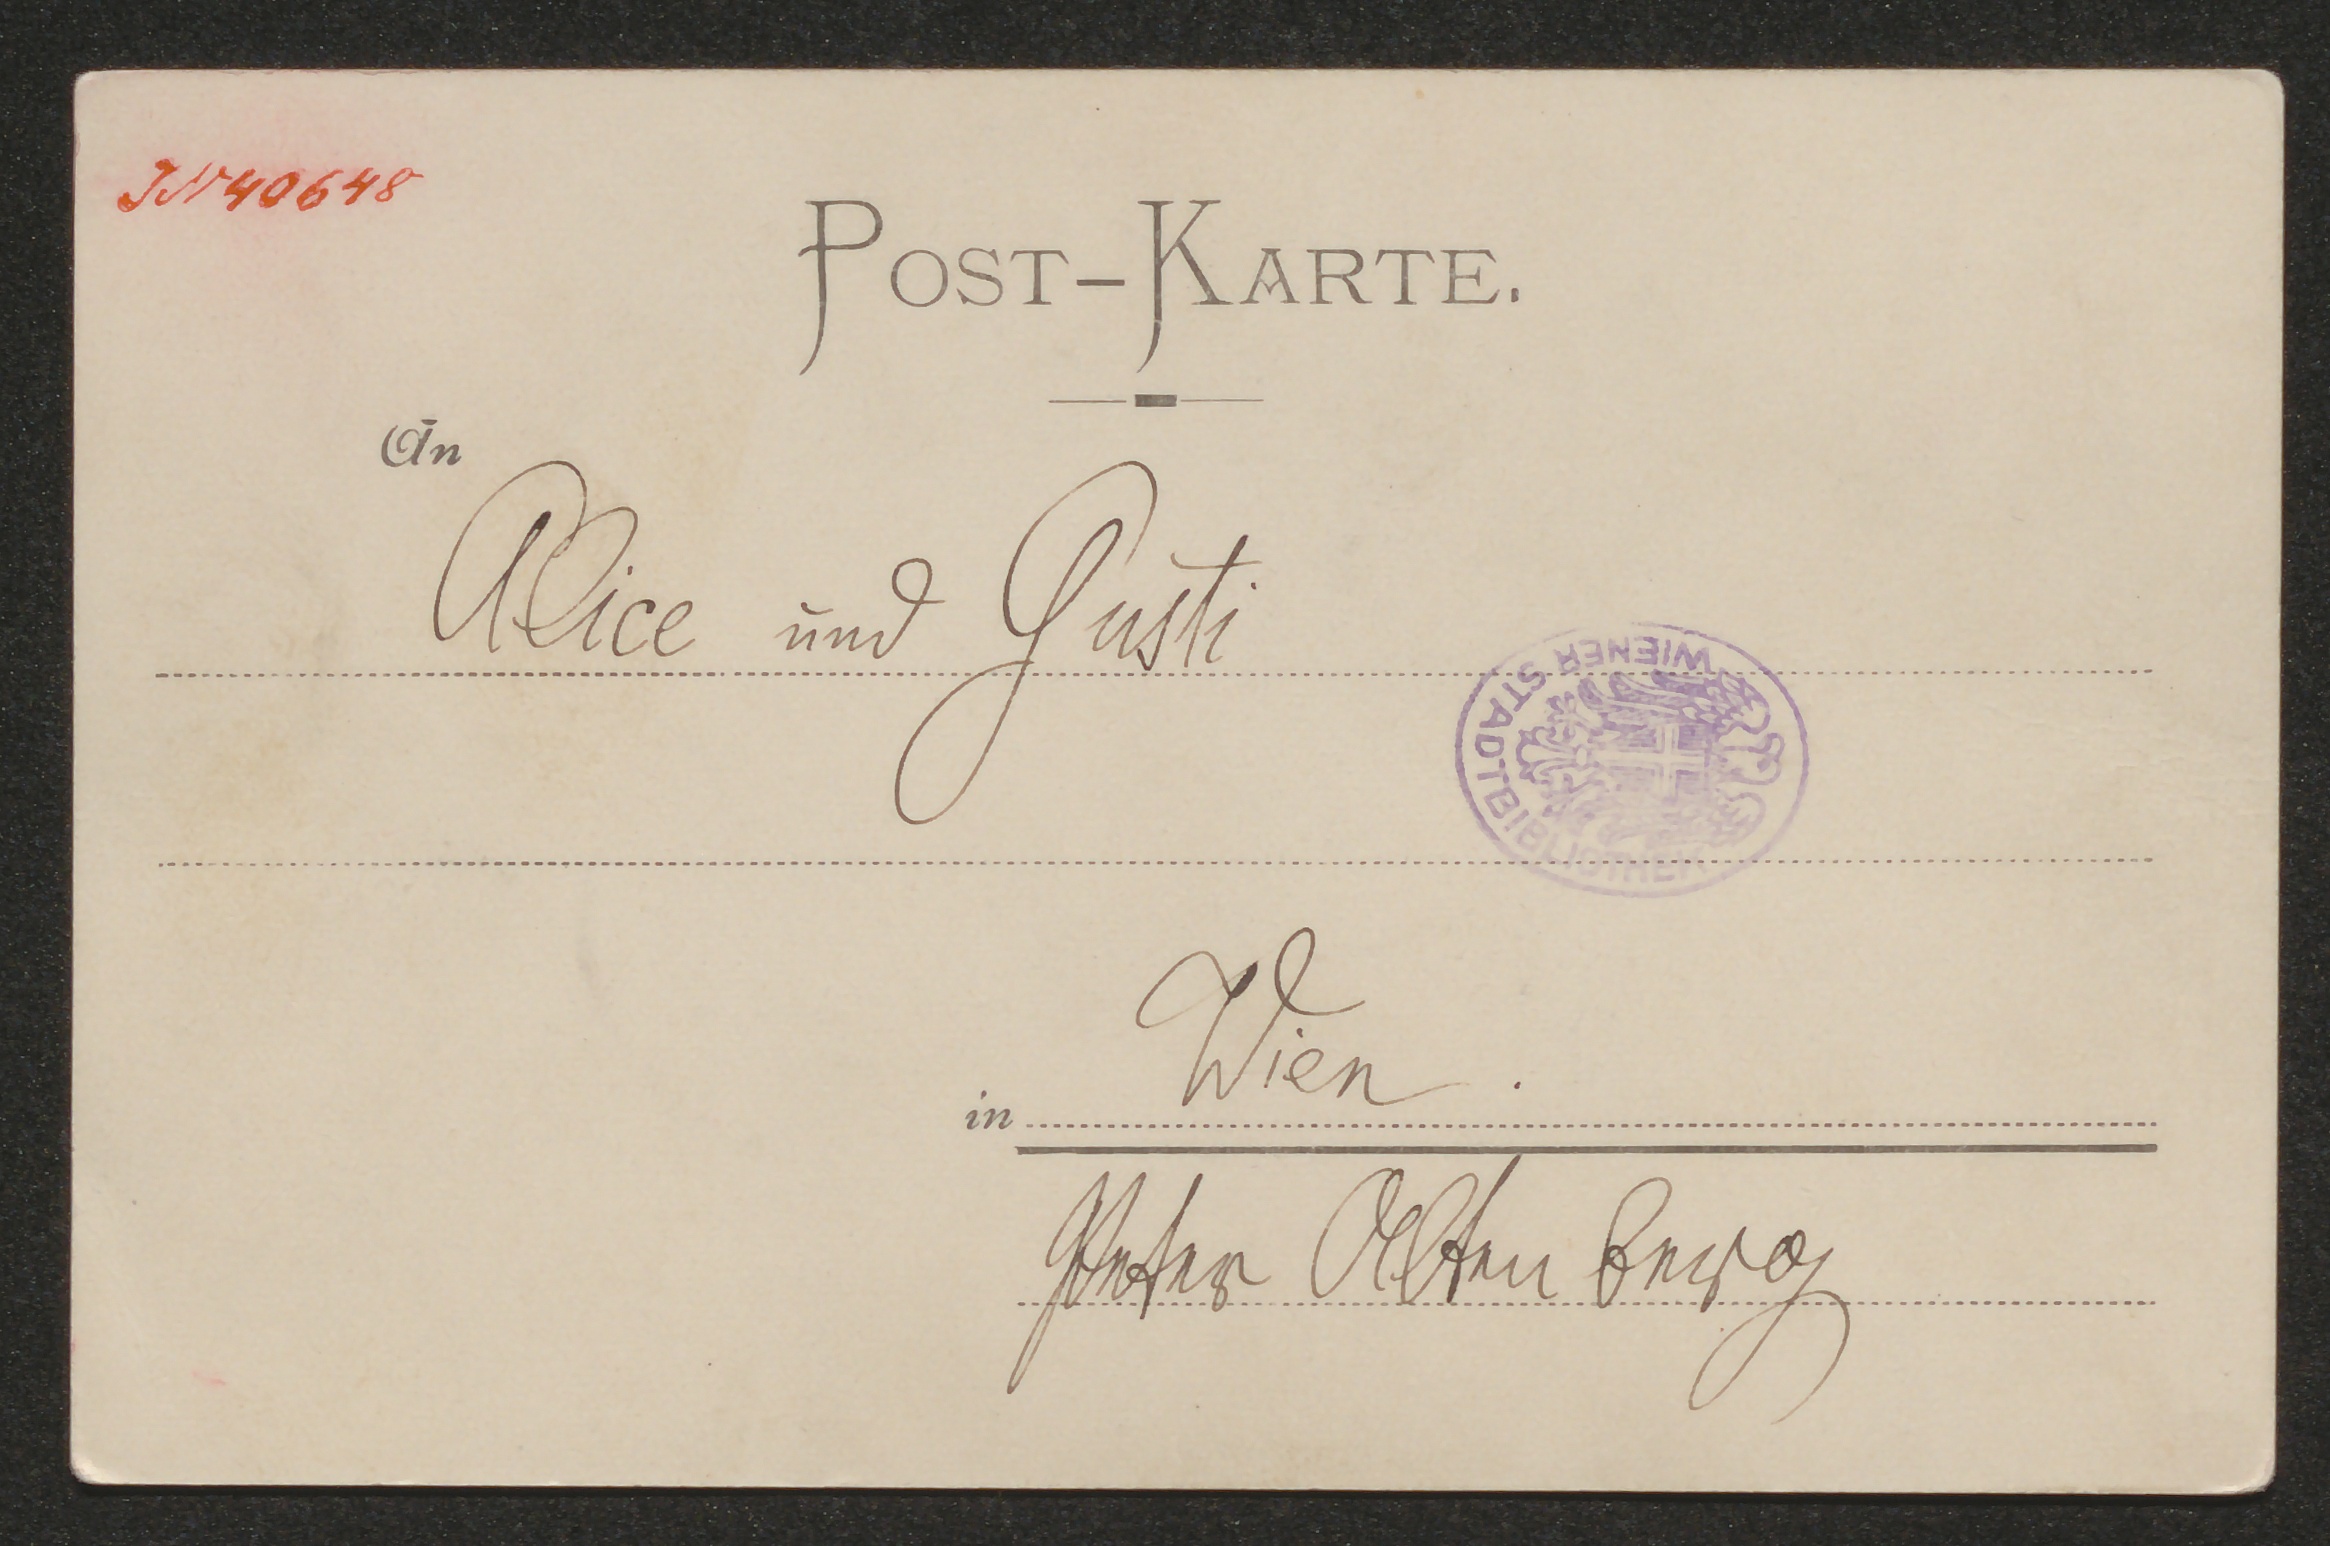 JN 40648
POST-KARTE.
An
Alice und Gusti
WIENER STADTBIBLIOTHEK
Wien.
in
Peter Altenberg